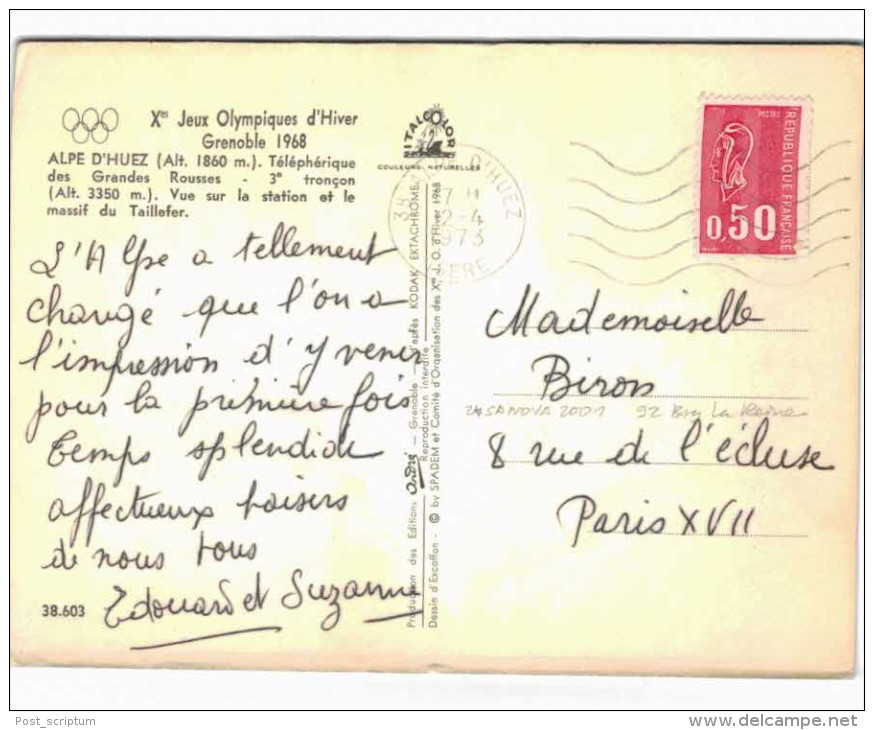 Xes Jeux Olympiques d'Hiver
Grenoble 1968
ALPE D'HUEZ (Alt. 1860 m.). Téléphérique
des Grandes Rousses - 3e tronçon
(Alt. 3350 m.). Vue sur la station et le
massif du Taillefer.
L'Alpe a tellement
changé que l'on a
l'impression d'y venir
pour la première fois
temps splendide
affectueux baisers
de nous tous
Edouard et Suzanne
38.603
NITALCOLOR
COULEURS NATURELLES
Production des Editions André — Grenoble — d'après KODAK EKTACHROME
Reproduction interdite
Dessin d'Excoffon - © by SPADEM et Comité d'Organisation des Xes J. O. d'Hiver 1968
38 D'HUEZ
17 H
2-4
1973
ISERE
REPUBLIQUE FRANÇAISE
POSTES
0,50
Mademoiselle
Biron
CASANOVA 2001 92 Brg La Reine
8 rue de l'écluse
Paris XVII
Post_scriptum
www.delcampe.net